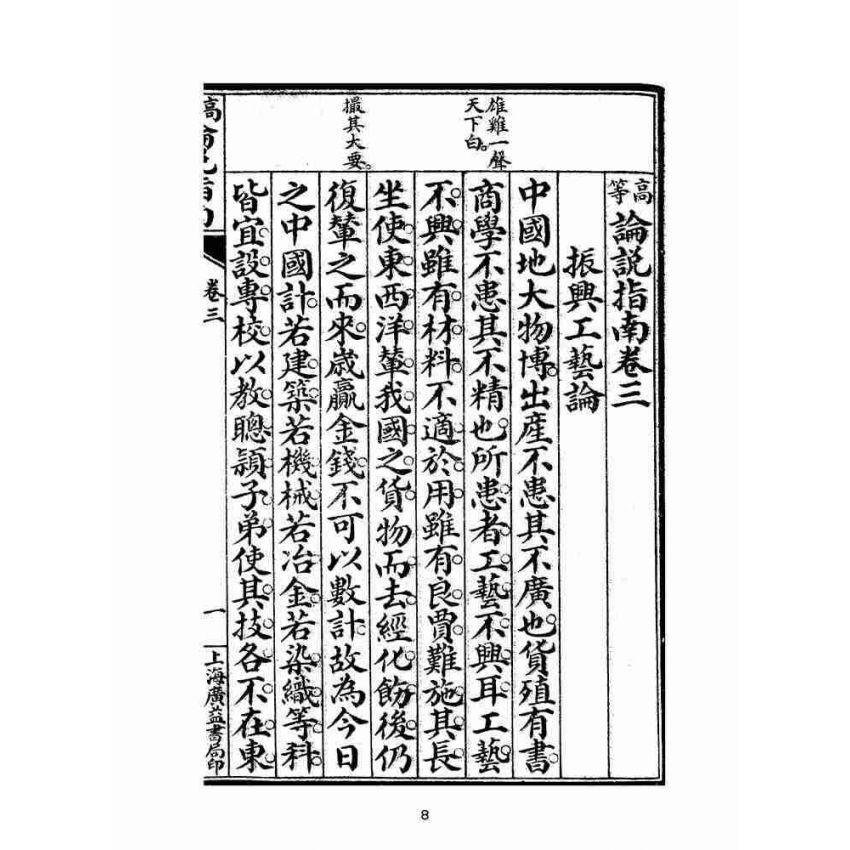 高等論說指南卷三
振興工藝論
中國地大物博出產不患其不廣也貨殖有書
商學不患其不精也所患者工藝不興耳工藝
不興雖有材料不適於用雖有良賈難施其長
坐使東西洋輦我國之貨物而去經化飭後仍
復輦之而來歲贏金錢不可以數計故為今日
之中國計若建築若機械若冶金若染織等科
皆宜設專校以教聰頴子弟使其技各不在東
雄雞一聲
天下白
撮其大要
卷三
一
上海廣益書局印
8